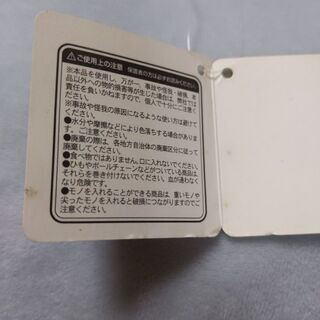 ⚠ご使用上の注意 保護者の方は必ずお読みください。
※本品を使用し、万が一、事故や怪我・破損、本
品以外への物的損害等が生じた場合は、弊社では
責任を負いかねますので、個人で十分にご注意く
ださい。
※事故や怪我の原因になるような使い方は避けて
ください。
●水分や摩擦などにより色落ちする場合がありま
す。ご注意ください。
●廃棄の際は、各地方自治体の廃棄区分に従って
廃棄してください。
●食べ物ではありません。口に入れないでください。
●ひもやボールチェーンなどがついている商品は、
それらを巻き付けないでください。血が通わなく
なり危険です。
●モノを入れることができる商品は、重いモノや
尖ったモノを入れると破損につながりますのでご
注意ください。